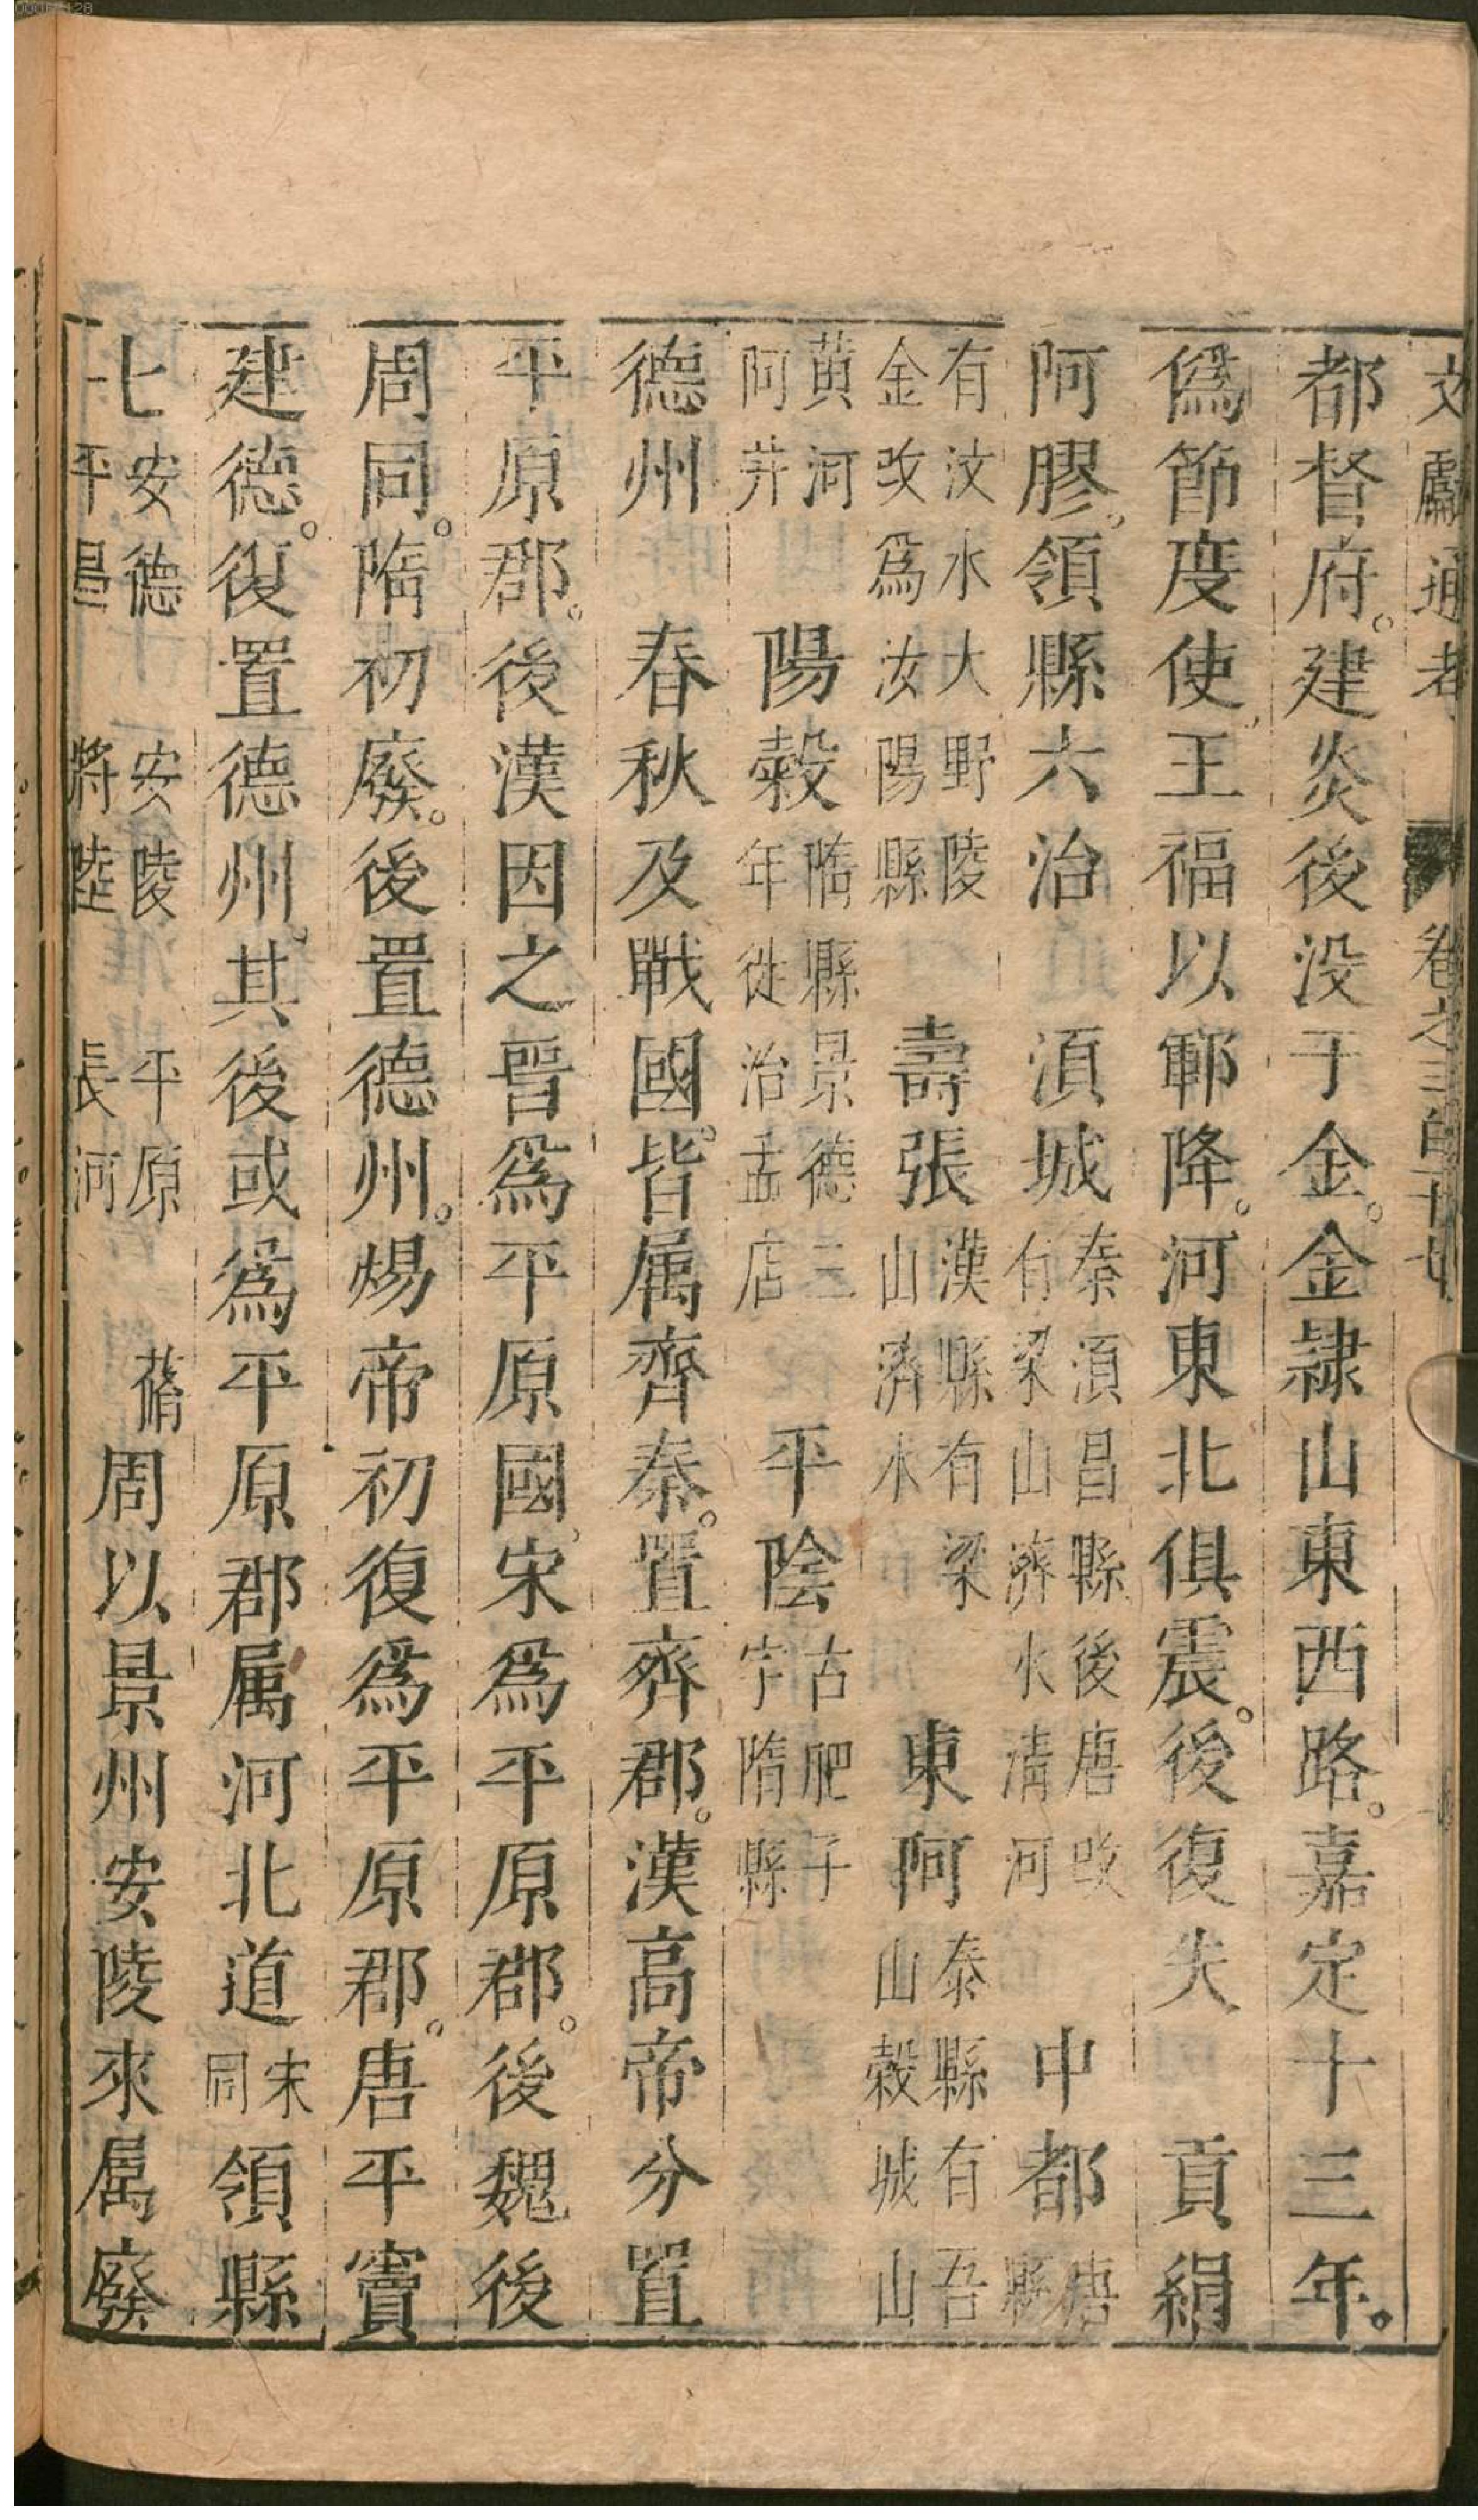 文獻通考 卷之三百十七
都督府。建炎後没于金。金隷山東西路。嘉定十三年。
僞節度使王福以鄆降。河東北俱震。後復失 貢絹
阿膠。領縣六治 湏城 秦湏昌縣後唐改有梁山濟水清河 中都 唐縣
有汶水大野陵金改爲汶陽縣 壽張 漢縣有梁山濟水 東阿 秦縣有吾山榖城山
黄河阿井 陽榖 隋縣景德三年徙治孟店 平陰 古肥子字隋縣
德州 春秋及戰國皆属齊秦。置齊郡。漢高帝分置
平原郡。後漢因之晉爲平原國宋爲平原郡。後魏後
周同。隋初廢。後置德州。煬帝初復爲平原郡。唐平竇
建德。復置德州。其後或爲平原郡属河北道 宋同 領縣
七 安德 平昌 安陵 將陵 平原 長河 蓨 周以景州安陵來属廢